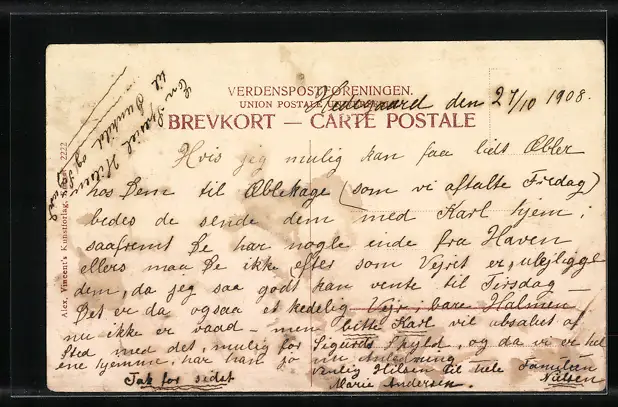 VERDENSPOSTFORENINGEN.
UNION POSTALE
Hedegaard den 27/10 1908.
BREVKORT — CARTE POSTALE
Hvis jeg mulig kan faa lidt Æbler
hos Dem til Æblekage (som vi aftalte Fredag)
bedes de sende dem med Karl hjem;
saafremt De har nogle inde fra Haven
ellers maa De ikke efter som Vejret er, ulejlige
dem, da jeg saa godt kan vente til Tirsdag —
Det er da ogsaa et kedelig Vejr, bare Halmen
nu ikke er vaad — men bitte Karl vil absolut af
Sted med det, mulig for Sigurds Skyld, og da vi er hel
ene hjemme, har han jo nu Anledning
venlig Hilsen til hele Familien
Tak for sidst Marie Andersen. Nielsen
En Speciel Hilsen
til Gunhild og
Alex. Vincent's Kunstforlag, 2222